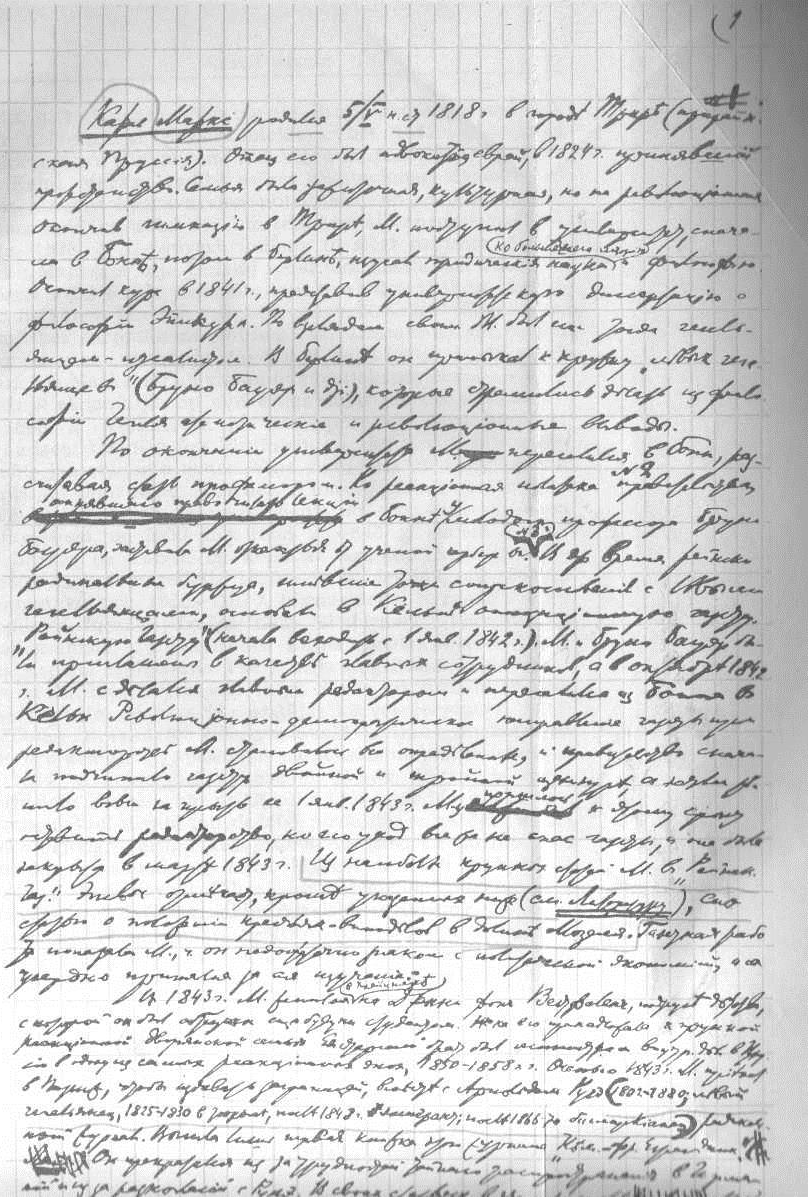 (1
Карл Маркс родился 5/V н. ст. 1818 г. в городе Трире (прирейн-
ская Пруссия). Отец его был адвокат, еврей, в 1824 г. принявший
протестантство. Семья была зажиточная, культурная, но не революционная.
Окончив гимназию в Трире, М. поступил в университет, снача-
ла в Бонне, потом в Берлине, изучал юридические науки, но больше всего историю и философию.
Окончил курс в 1841 г., представив университетскую диссертацию о
философии Эпикура. По взглядам своим М. был еще тогда гегель-
янцем-идеалистом. В Берлине он примыкал к кружку „левых геге-
льянцев“ (Бруно Бауэр и др.), которые стремились делать из фило-
софии Гегеля атеистические и революционные выводы.
По окончании университета М. переселился в Бонн, рас-
считывая стать профессором. Но реакционная политика правительства,
в Бонне профессора Бруно
Бауэра, заставила М. отказаться от ученой карьеры. В это время рейнские
радикальные буржуа, имевшие точки соприкосновения с левыми
гегельянцами, основали в Кельне оппозиционную газету
„Рейнскую Газету“ (начала выходить с 1 янв. 1842 г.). М. и Бруно Бауэр бы-
ли приглашены в качестве главных сотрудников, а в октябре 1842
г. М. сделался главным редактором и переселился из Бонна в
Кельн. Революционно-демократическое направление газеты при
редакторстве М. становилось все определеннее, и правительство снача-
ла подчинило газету двойной и тройной цензуре, а затем ре-
шило вовсе закрыть ее 1 янв. 1843 г. М. пришлось к этому сроку
оставить редакторство, но его уход все же не спас газеты, и она была
закрыта в марте 1843 г. Из наиболее крупных статей М. в „Рейнск.
Газ.“ отмечает, кроме указанных ниже (см. Литературу), еще
статью о положении крестьян-виноделов в долине Мозеля. Газетная рабо-
та показала М., ч. он недостаточно знаком с политической экономией, и он
усердно принялся за ее изучение.
В 1843 г. М. женился в Крейцнахе на Женни фон Вестфален, подруге детства,
с которой он был обручен еще будучи студентом. Жена его принадлежала к прусской
реакционной дворянской семье. Ее старший брат был министром внутр. дел в Прус-
сии в одну из самых реакционных эпох, 1850-1858 гг. Осенью 1843 г. М. приехал
в Париж, чтобы издавать за границей, вместе с Арнольдом Руге (1802-1880; левый
гегельянец, 1825-1830 в тюрьме, после 1848 г. эмигрант; после 1866-70 бисмаркианец), радикаль-
ный журнал. Вышла лишь первая книжка этого журнала „Нем.-фр. Ежегодник“.
Он прекратился из-за трудностей тайного распространения в Герма-
нии и из-за разногласий с Руге. В своих статьях в